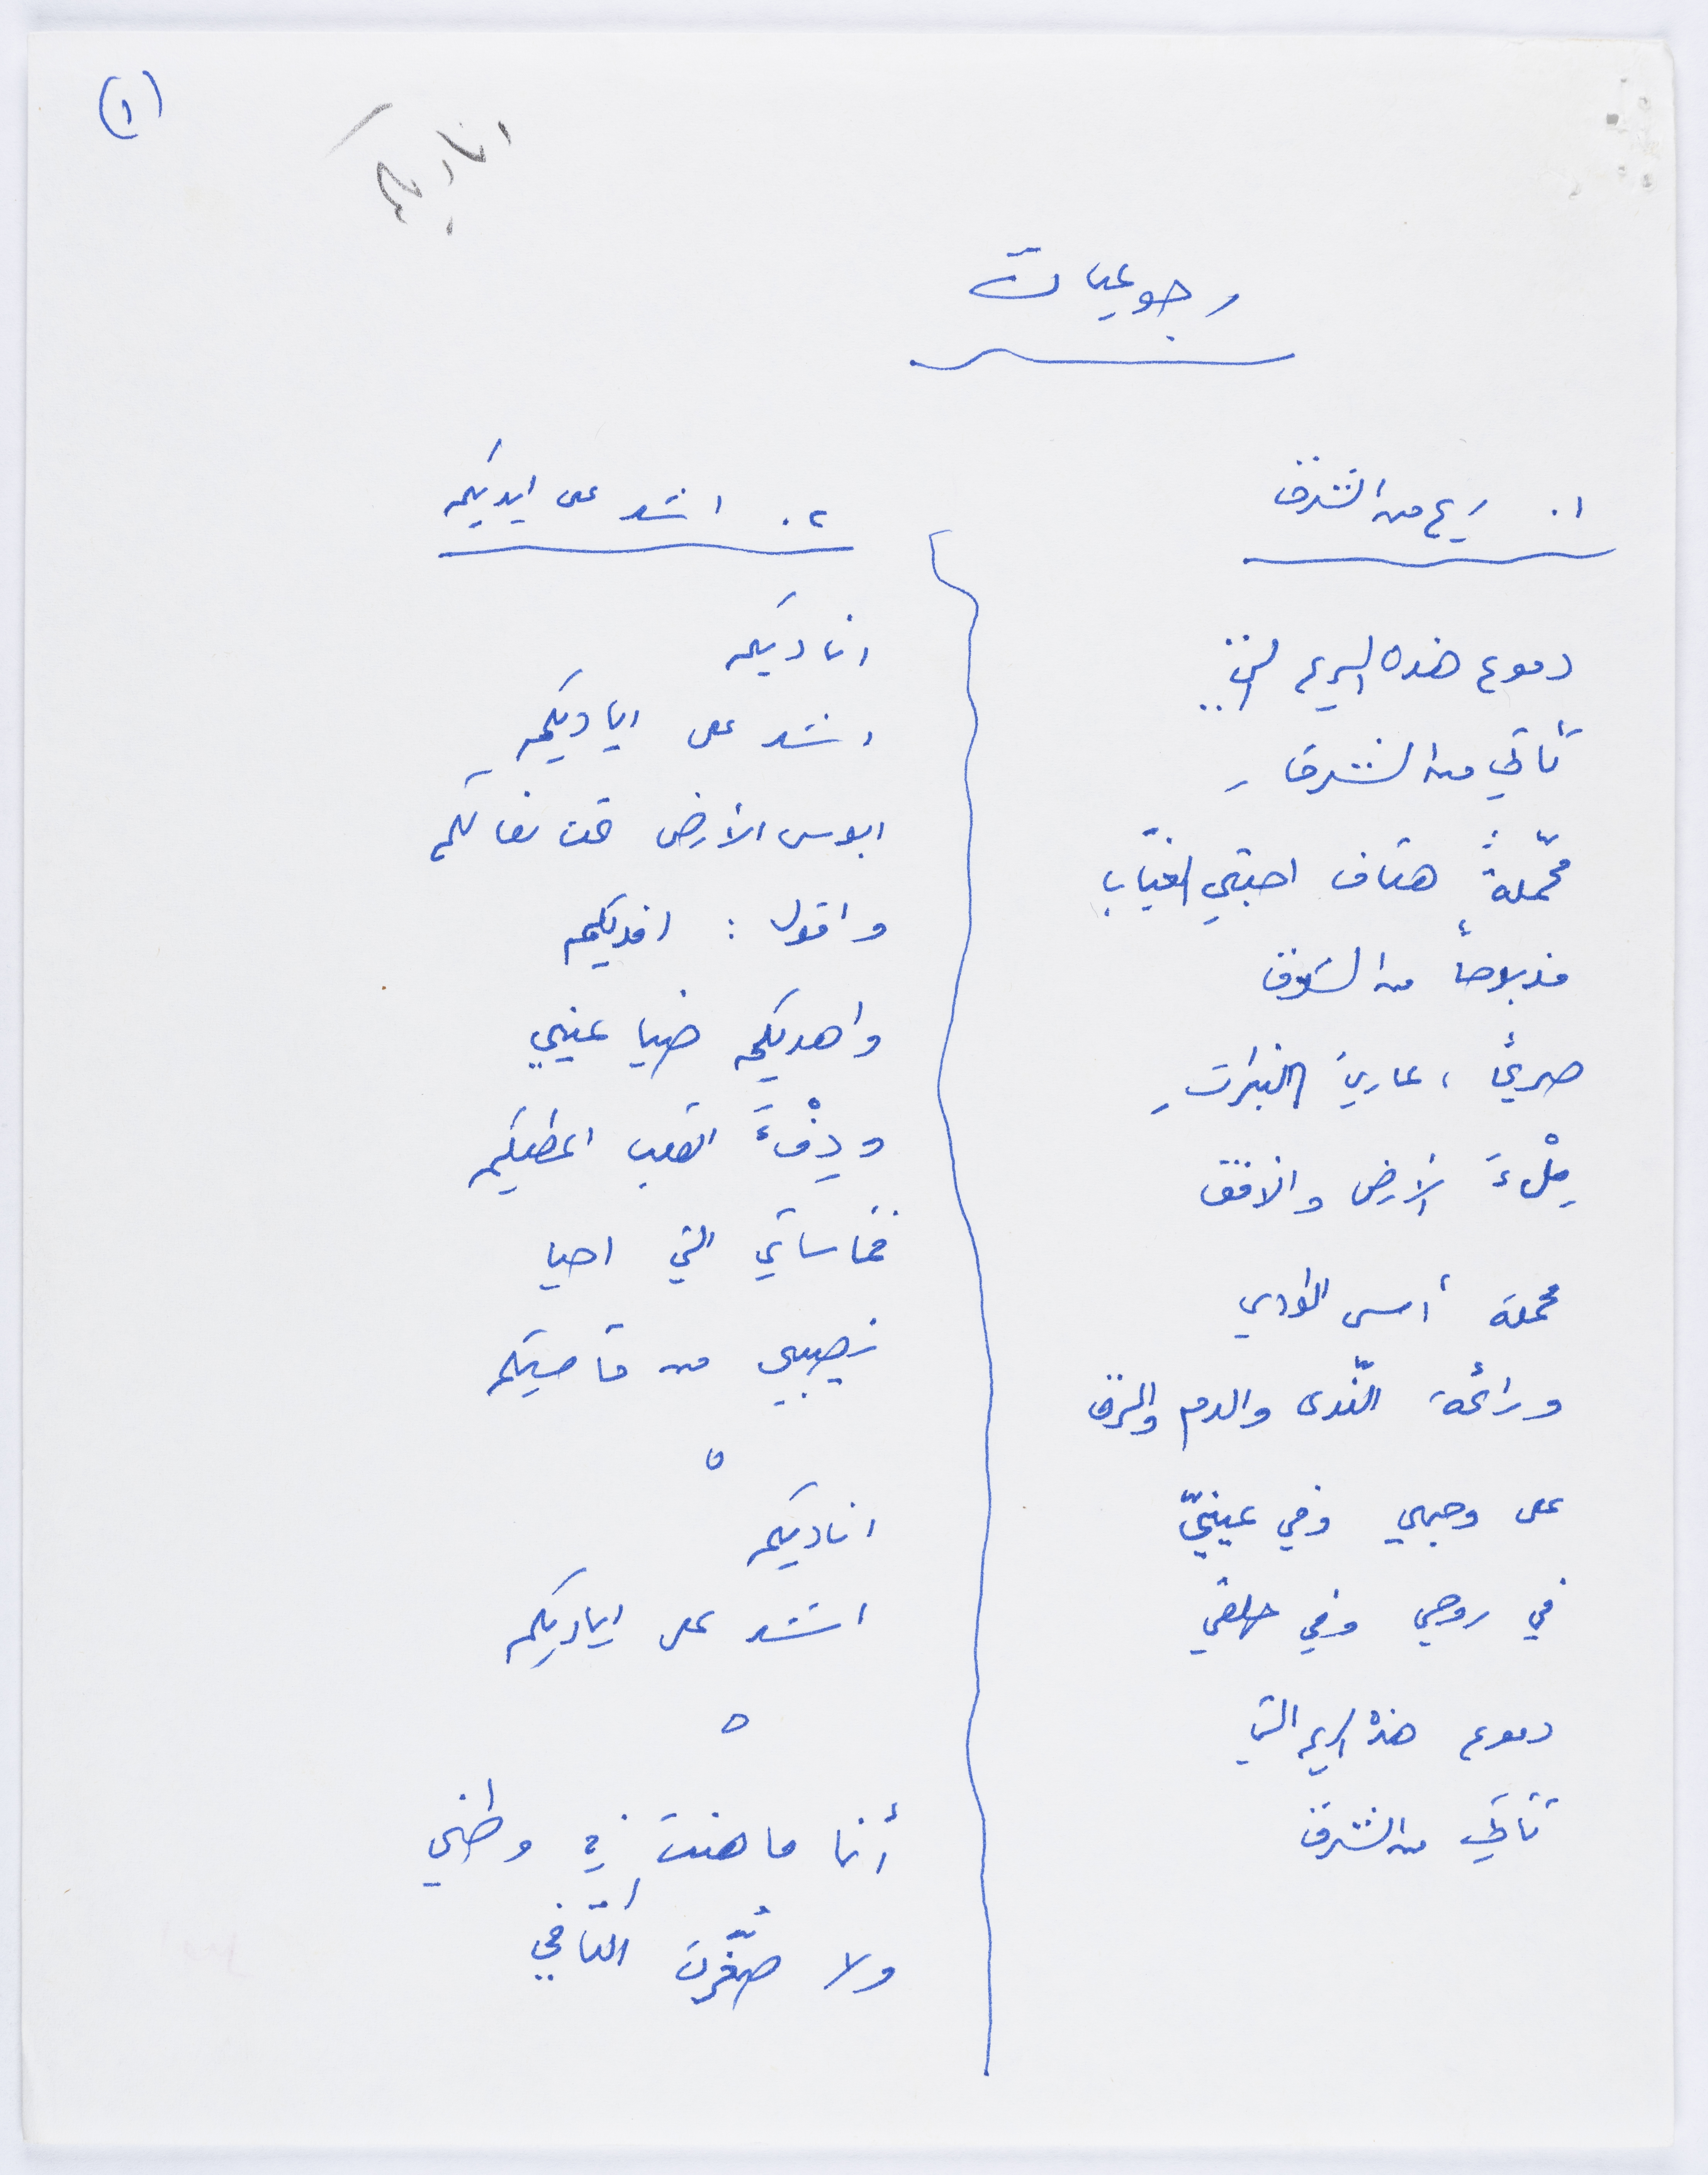 (١)
اناديكم
رجوعيات
١. ريح من الشرق
دموع هذه الريح التي..
تأتي من الشرق
محمّلةٌ هتاف احبتي الغيّاب
مذبوحاً من الشوق
صريحاً، عاريَ النبراتِ
مِلْءَ الأرض والافق
محملة أسى الوادي
ورائحة النّدى والدم والمزق
على وجهي وفي عينيّ
في روحي وفي حلقي
دموع هذه الريح التي
تأتي من الشرق
٢. اشد على ايديكم
اناديكم
اشد على اياديكم
ابوس الأرض تحت نعالكم
واقول: افديكم
واهديكم ضيا عيني
ودِفْءَ القلب اعطيكم
فمأساتي التي احيا
نصيبي من مآسيكم
٥
اناديكم
اشد على اياديكم
٥
أنا ما هنت في وطني
ولا صَغّرتُ اكتافي